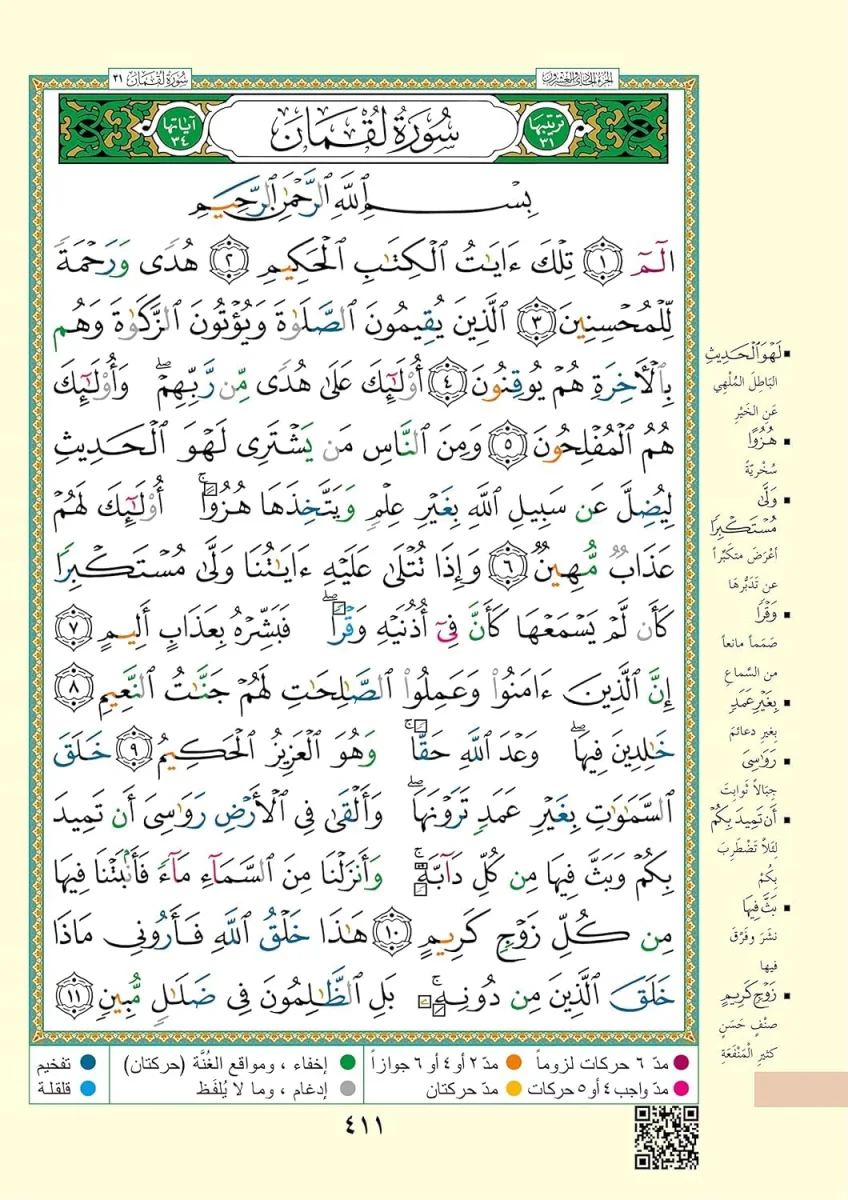 الجزء الحادي والعشرون
سورة لقمان ٣١
ترتيبها ٣١
سُورَةُ لُقْمَان
آياتها ٣٤
بِسْمِ ٱللَّهِ ٱلرَّحْمَٰنِ ٱلرَّحِيمِ
الٓمٓ ١ تِلْكَ ءَايَٰتُ ٱلْكِتَٰبِ ٱلْحَكِيمِ ٢ هُدًى وَرَحْمَةً
لِّلْمُحْسِنِينَ ٣ ٱلَّذِينَ يُقِيمُونَ ٱلصَّلَوٰةَ وَيُؤْتُونَ ٱلزَّكَوٰةَ وَهُم
بِٱلْأَخِرَةِ هُمْ يُوقِنُونَ ٤ أُوْلَٰٓئِكَ عَلَىٰ هُدًى مِّن رَّبِّهِمْ ۖ وَأُوْلَٰٓئِكَ
هُمُ ٱلْمُفْلِحُونَ ٥ وَمِنَ ٱلنَّاسِ مَن يَشْتَرِى لَهْوَ ٱلْحَدِيثِ
لِيُضِلَّ عَن سَبِيلِ ٱللَّهِ بِغَيْرِ عِلْمٍ وَيَتَّخِذَهَا هُزُوًا ۚ أُوْلَٰٓئِكَ لَهُمْ
عَذَابٌ مُّهِينٌ ٦ وَإِذَا تُتْلَىٰ عَلَيْهِ ءَايَٰتُنَا وَلَّىٰ مُسْتَكْبِرًا
كَأَن لَّمْ يَسْمَعْهَا كَأَنَّ فِىٓ أُذُنَيْهِ وَقْرًا ۖ فَبَشِّرْهُ بِعَذَابٍ أَلِيمٍ ٧
إِنَّ ٱلَّذِينَ ءَامَنُواْ وَعَمِلُواْ ٱلصَّٰلِحَٰتِ لَهُمْ جَنَّٰتُ ٱلنَّعِيمِ ٨
خَٰلِدِينَ فِيهَا ۖ وَعْدَ ٱللَّهِ حَقًّا ۚ وَهُوَ ٱلْعَزِيزُ ٱلْحَكِيمُ ٩ خَلَقَ
ٱلسَّمَٰوَٰتِ بِغَيْرِ عَمَدٍ تَرَوْنَهَا ۖ وَأَلْقَىٰ فِى ٱلْأَرْضِ رَوَٰسِىَ أَن تَمِيدَ
بِكُمْ وَبَثَّ فِيهَا مِن كُلِّ دَآبَّةٍ ۚ وَأَنزَلْنَا مِنَ ٱلسَّمَآءِ مَآءً فَأَنۢبَتْنَا فِيهَا
مِن كُلِّ زَوْجٍ كَرِيمٍ ١٠ هَٰذَا خَلْقُ ٱللَّهِ فَأَرُونِى مَاذَا
خَلَقَ ٱلَّذِينَ مِن دُونِهِۦ ۚ بَلِ ٱلظَّٰلِمُونَ فِى ضَلَٰلٍ مُّبِينٍ ١١
لَهْوَ ٱلْحَدِيثِ
البَاطِلَ المُلْهِي
عَنِ الخَيْرِ
هُزُوًا
سُخْرِيّةً
وَلَّىٰ
مُسْتَكْبِرًا
أعْرَضَ متكبّراً
عن تَدَبُّرِهَا
وَقْرًا
صَمَماً مانعاً
من السَّماعِ
بِغَيْرِ عَمَدٍ
بغيرِ دعائمَ
رَوَٰسِىَ
جبَالاً ثوابِتَ
أَن تَمِيدَ بِكُمْ
لِئَلاَّ تَضْطَرِبَ
بِكُمْ
بَثَّ فِيهَا
نشَرَ وفرَّقَ
فيها
زَوْجٍ كَرِيمٍ
صنْفٍ حَسَنٍ
كثيرِ المَنْفَعَةِ
مدّ ٦ حركات لزوماً
مدّ ٢ أو ٤ أو ٦ جوازاً
إخفاء ، ومواقع الغُنَّة (حركتان)
تفخيم
مدّ واجب ٤ أو ٥ حركات
مدّ حركتان
إدغام ، وما لا يُلفَظ
قلقلة
٤١١